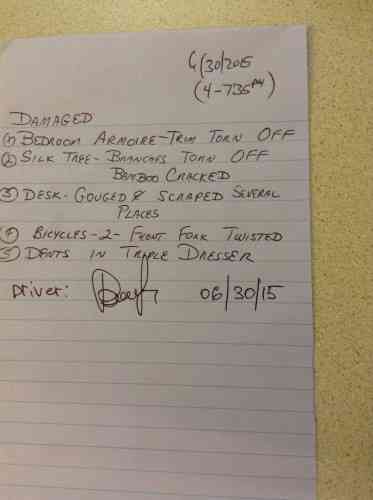 6/30/2015
(4-735PM)
DAMAGED
(1) BEDROOM ARMOIRE-TRIM TORN OFF
(2) SILK TREE-BRANCHES TORN OFF
BAMBOO CRACKED
(3) DESK-GOUGED & SCRAPED SEVERAL
PLACES
(4) BICYCLES-2-FRONT FORK TWISTED
(5) DENTS IN TRIPLE DRESSER
Driver: 06/30/15